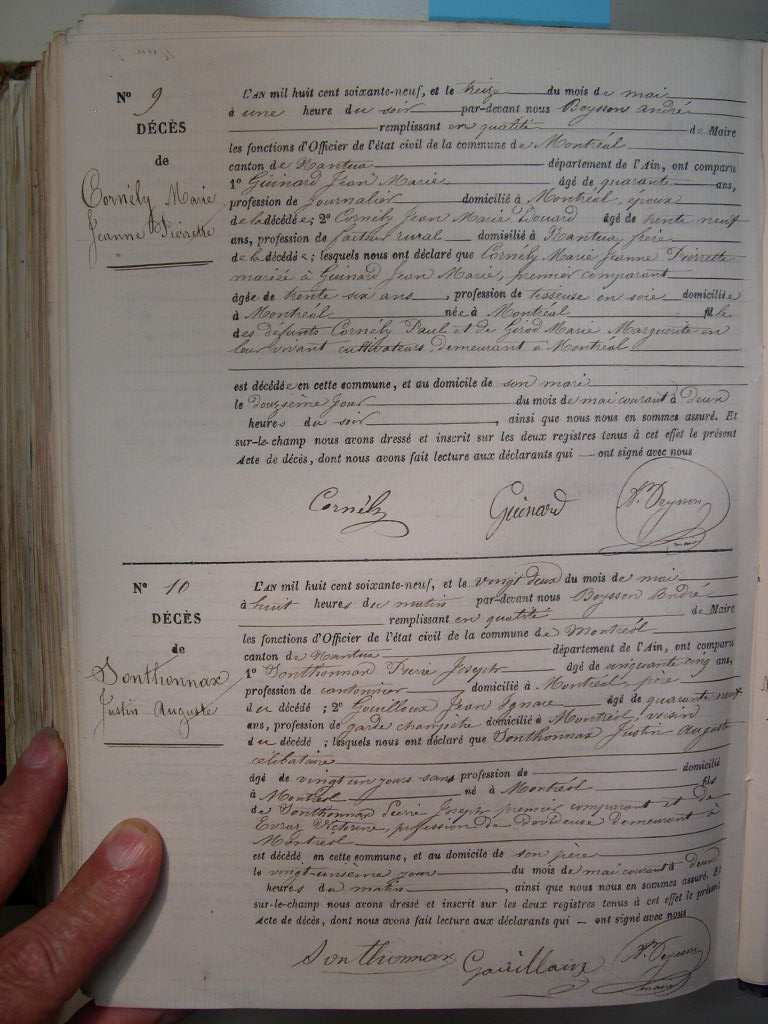 N° 9
DÉCÈS
de
Cornély Marie
Jeanne Pierrette
L'AN mil huit cent soixante-neuf, et le treize du mois de mai
à une heure du soir par-devant nous Beysson André
remplissant en qualité de Maire
les fonctions d'Officier de l'état civil de la commune de Montréal
canton de Nantua département de l'Ain, ont comparu
1° Guinard Jean Marie âgé de quarante ans,
profession de journalier domicilié à Montréal, époux
de la décédée ; 2° Cornély Jean Marie Édouard âgé de trente neuf
ans, profession de facteur rural domicilié à Nantua, frère
de la décédée ; lesquels nous ont déclaré que Cornély Marie Jeanne Pierrette
mariée à Guinard Jean Marie, premier comparant
âgée de trente six ans , profession de tisseuse en soie domiciliée
à Montréal née à Montréal fille
des défunts Cornély Paul et de Girod Marie Marguerite en
leur vivant cultivateurs demeurant à Montréal
est décédée en cette commune, et au domicile de son mari
le douzième jour du mois de mai courant à deux
heures du soir , ainsi que nous nous en sommes assuré. Et
sur-le-champ nous avons dressé et inscrit sur les deux registres tenus à cet effet le présent
Acte de décès, dont nous avons fait lecture aux déclarants qui — ont signé avec nous
Cornély Guinard
N° 10
DÉCÈS
de
Sonthonnax
Justin Auguste
L'AN mil huit cent soixante-neuf, et le vingt deux du mois de mai
à huit heures du matin par-devant nous Beysson André
remplissant en qualité de Maire
les fonctions d'Officier de l'état civil de la commune de Montréal
canton de Nantua département de l'Ain, ont comparu
1° Sonthonnax Pierre Joseph âgé de cinquante cinq ans,
profession de cantonnier domicilié à Montréal, père
du décédé ; 2° Gouilloux Jean Ignace âgé de quarante neuf
ans, profession de garde champêtre domicilié à Montréal, voisin
du décédé ; lesquels nous ont déclaré que Sonthonnax Justin Auguste
célibataire
âgé de vingt un jours sans profession de domicilié
à Montréal né à Montréal fils
de Sonthonnax Pierre Joseph premier comparant et de
Evraz Victorine, profession de demeurant à
Montréal
est décédé en cette commune, et au domicile de son père
le vingt-unième jour du mois de mai courant à deux
heures du matin , ainsi que nous nous en sommes assuré. Et
sur-le-champ nous avons dressé et inscrit sur les deux registres tenus à cet effet le présent
Acte de décès, dont nous avons fait lecture aux déclarants qui — ont signé avec nous
Sonthonnax